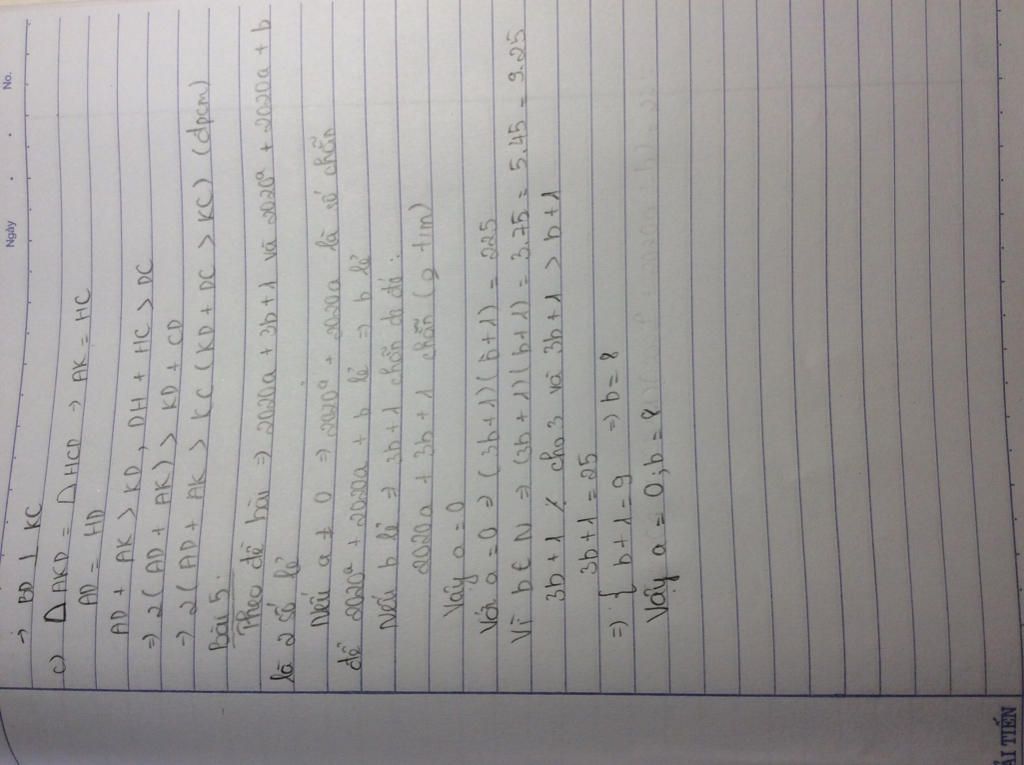 Ngày No.
→ BD ⊥ KC
c) Δ AKD = Δ HCD → AK = HC
AD = HD
AD + AK > KD, DH + HC > DC
⇒ 2(AD + AK) > KD + CD
→ 2(AD + AK > KC (KD + DC > KC) (đpcm)
Bài 5:
Theo đề bài ⇒ 2020a + 3b + 1 và 2020ᵃ + 2020a + b
là 2 số lẻ
Nếu a ≠ 0 ⇒ 2020ᵃ + 2020a là số chẵn
để 2020ᵃ + 2020a + b lẻ ⇒ b lẻ
Nếu b lẻ ⇒ 3b + 1 chẵn do đó:
2020a + 3b + 1 chẵn (o t/m)
Vậy a = 0
Với a = 0 ⇒ (3b + 1)(b + 1) = 225
Vì b ∈ N ⇒ (3b + 1)(b + 1) = 3.75 = 5.45 = 9.25
3b + 1 ⋮̸ cho 3 và 3b + 1 > b + 1
⇒ { 3b + 1 = 25
b + 1 = 9 ⇒ b = 8
Vậy a = 0; b = 8
ẢI TIẾN